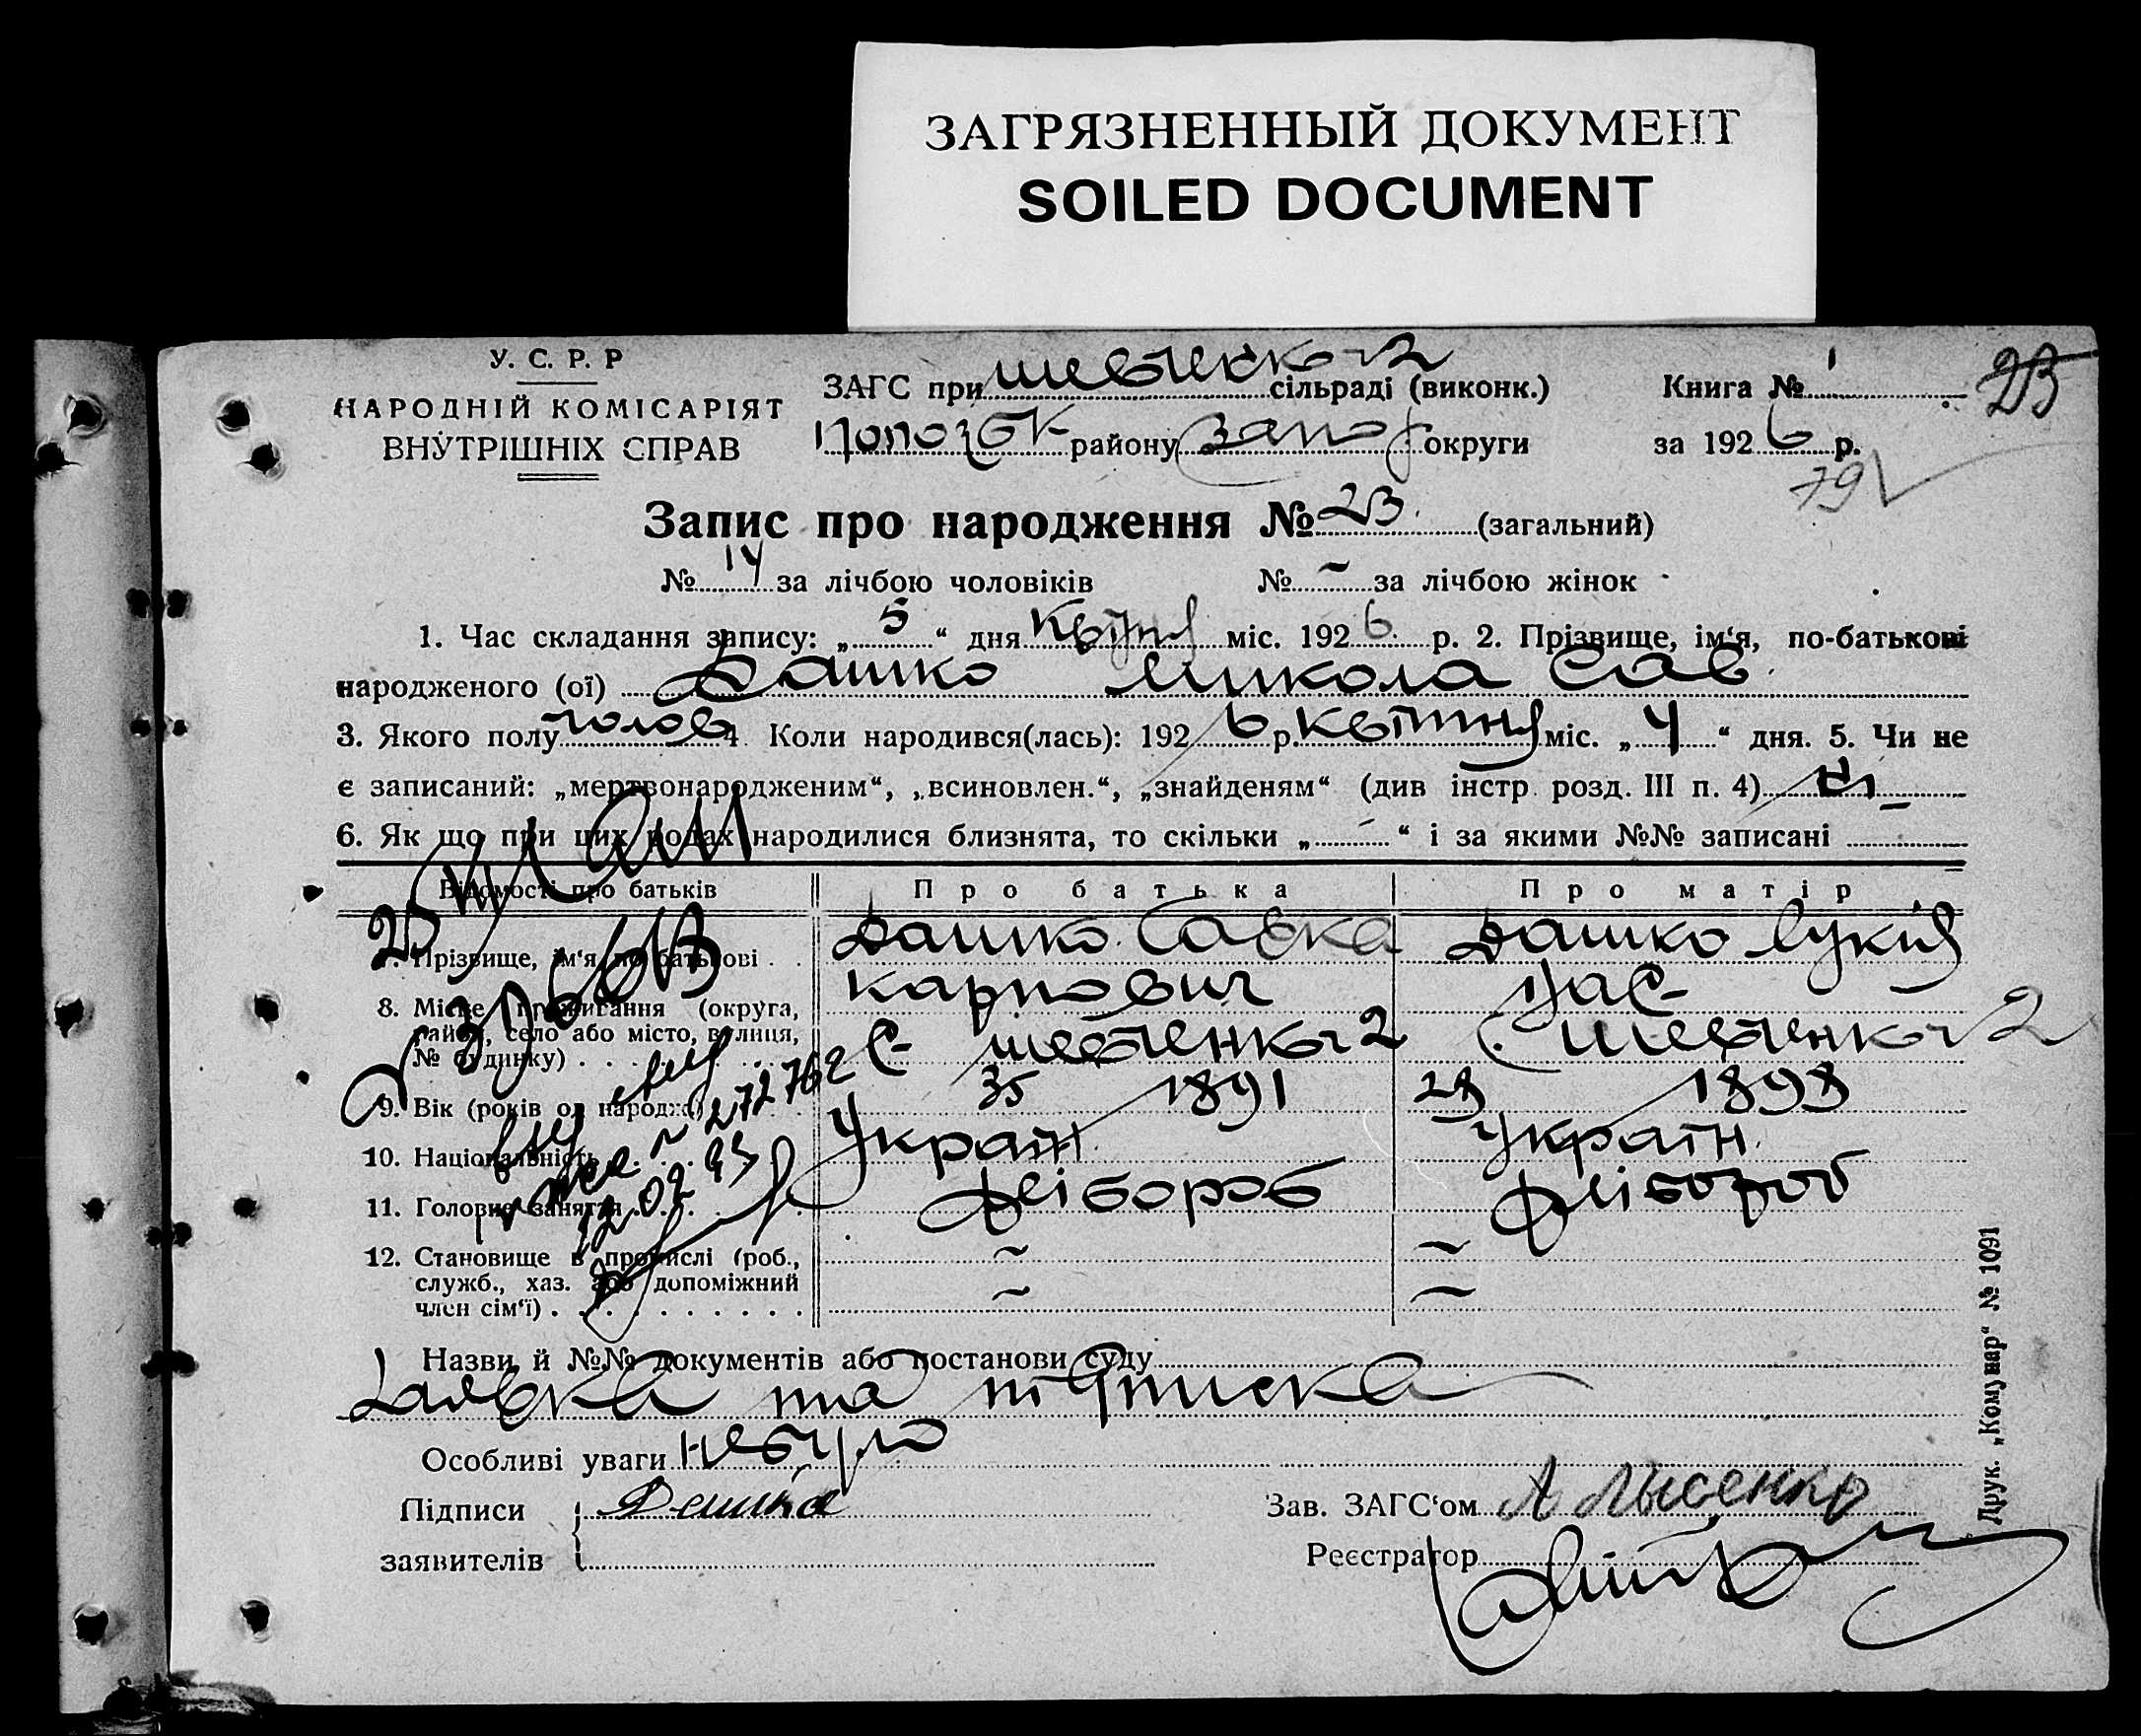 ЗАГРЯЗНЕННЫЙ ДОКУМЕНТ
SOILED DOCUMENT
У. С. Р. Р
НАРОДНІЙ КОМІСАРІЯТ
ВНУТРІШНІХ СПРАВ
ЗАГС при сільраді (виконк.)
району Запор округи
Книга № 1
23
за 1926 р.
79
Запис про народження № 23 (загальний)
№ 14 за лічбою чоловіків № – за лічбою жінок
1. Час складання запису: „5“ дня Квітня міс. 1926 р. 2. Прізвище, ім‘я, по-батькові
народженого (ої) Дашко Микола Сав.
3. Якого полу чолов 4. Коли народився(лась): 1926 р. Квітня міс. „4“ дня. 5. Чи не
є записаний: „мертвонародженим“, „всиновлен.“, „знайденям“ (див інстр. розд. III п. 4) ні
6. Як що при цих родах народилися близнята, то скільки „-“ і за якими №№ записані
Відомості про батьків Про батька Про матір
7. Прізвище, ім‘я, по батькові . . Дашко Савка Дашко Лукія
Карпович
8. Місце проживання (округа, район, село або місто, вулиця, № будинку) С. Шевченко 2 С. Шевченко 2
9. Вік (років од народж.) 35 1891 28 1898
272762
10. Національність Україн Україн.
11. Головне заняття Хлібороб Хлібороб
12. Становище в промислі (роб., служб., хаз. або допоміжний член сім‘ї) ~ ~
~ ~
Назви й №№ документів або постанови суду
Заявка та підписка
Особливі уваги не було
Підписи заявителів Дашко
Зав. ЗАГС‘ом А Лысенко
Реєстратор
Друк. „Комунар“ № 1091